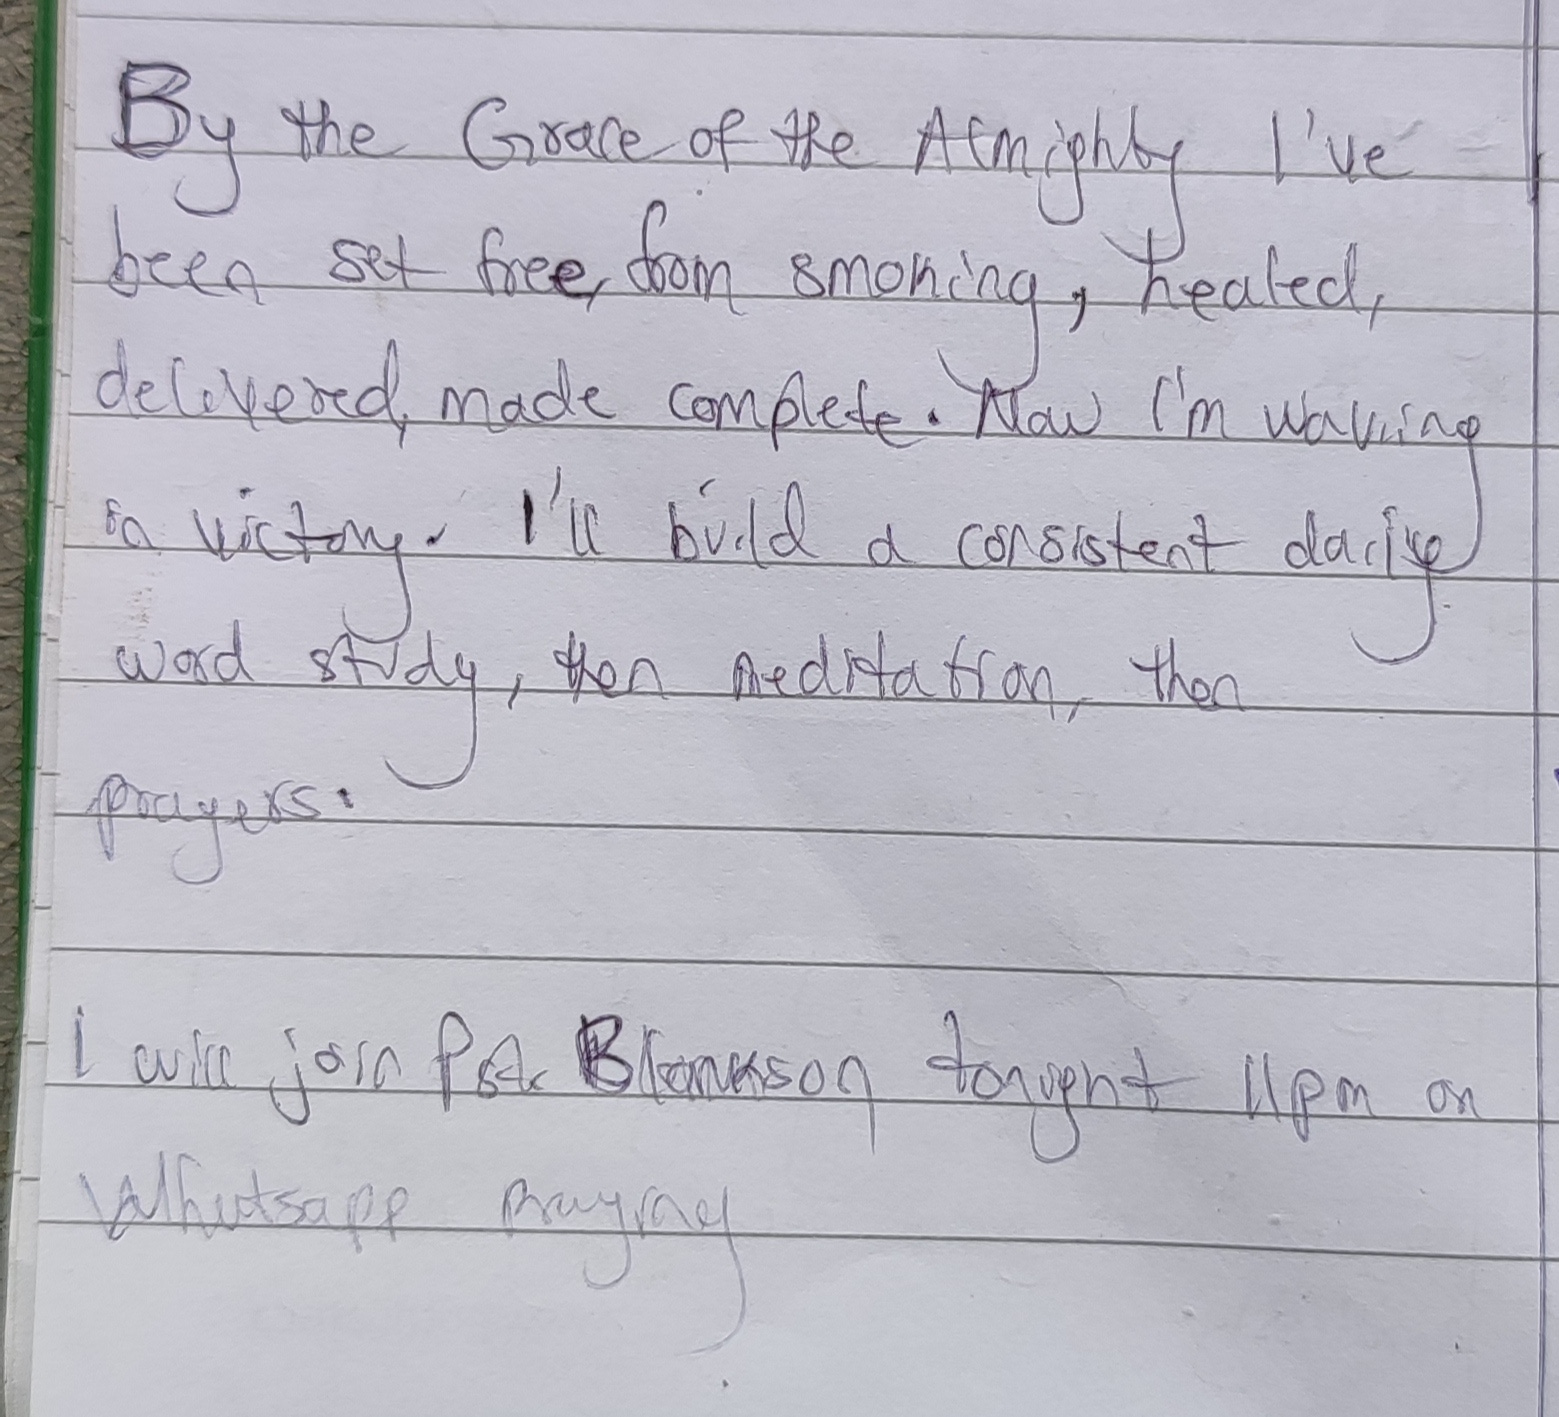 By the Grace of the Almighty I've
been set free, from smoking, healed,
delivered, made complete. Now I'm walking
in victory. I'll build a consistent daily
word study, then meditation, then
prayers.
I will join Pst. tonight 11pm on
Whatsapp praying